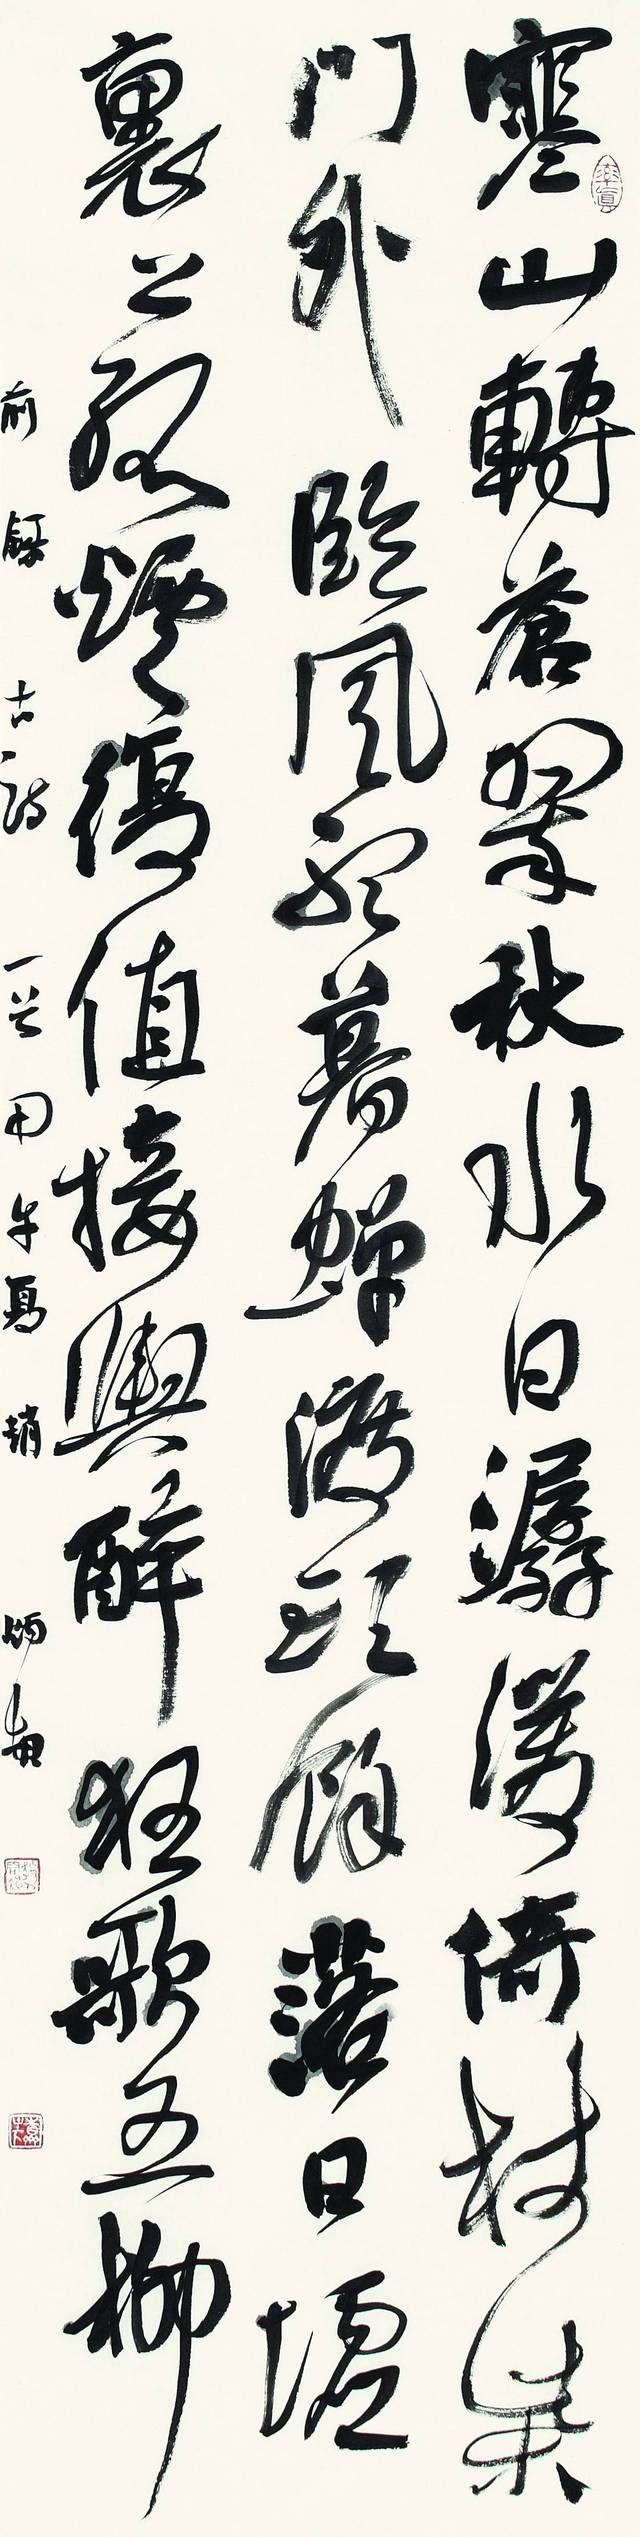 寒山轉蒼翠秋水日潺湲倚杖柴
門外臨風聽暮蟬渡頭餘落日墟
裏上孤煙復值接輿醉狂歌五柳
前 錄古詩一首甲午夏
率真